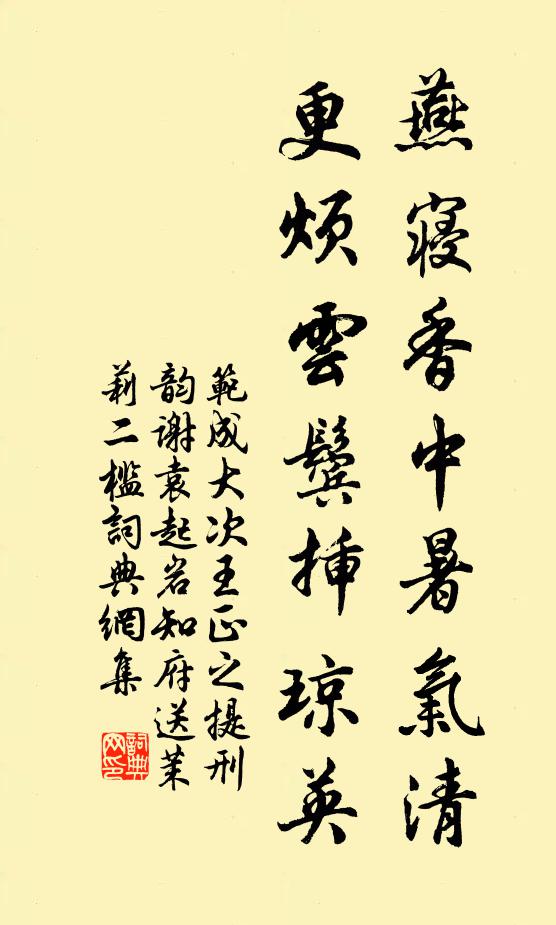 燕寢香中暑氣清
更煩雲鬓插琼英
範成大次王正之提刑
韵謝袁起岩知府送茉
莉二檻詞典網集
詞典網印